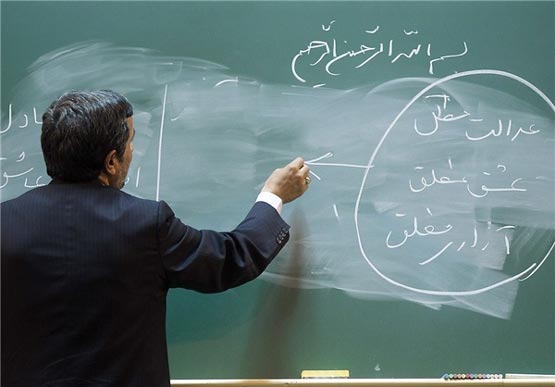 بسم الله الرحمن الرحیم
عدالت مطلق
عشق مطلق
آزادی مطلق
عادل
عاشق